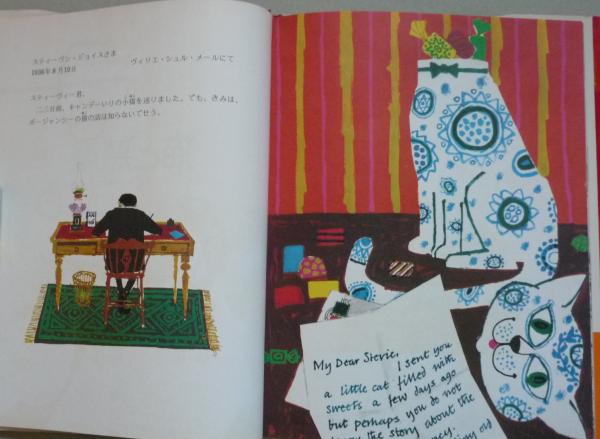 スティーヴン・ジョイスさま
ヴィリエ・シュル・メールにて
1936年8月10日
スティーヴィー君、
二三日前、キャンデーいりの小猫を送りました。でも、きみは、
ボージャンシーの猫の話は知らないでせう。
My Dear Stevie,
I sent you
a little cat filled with
sweets a few days ago
but perhaps you do not
know the story about the